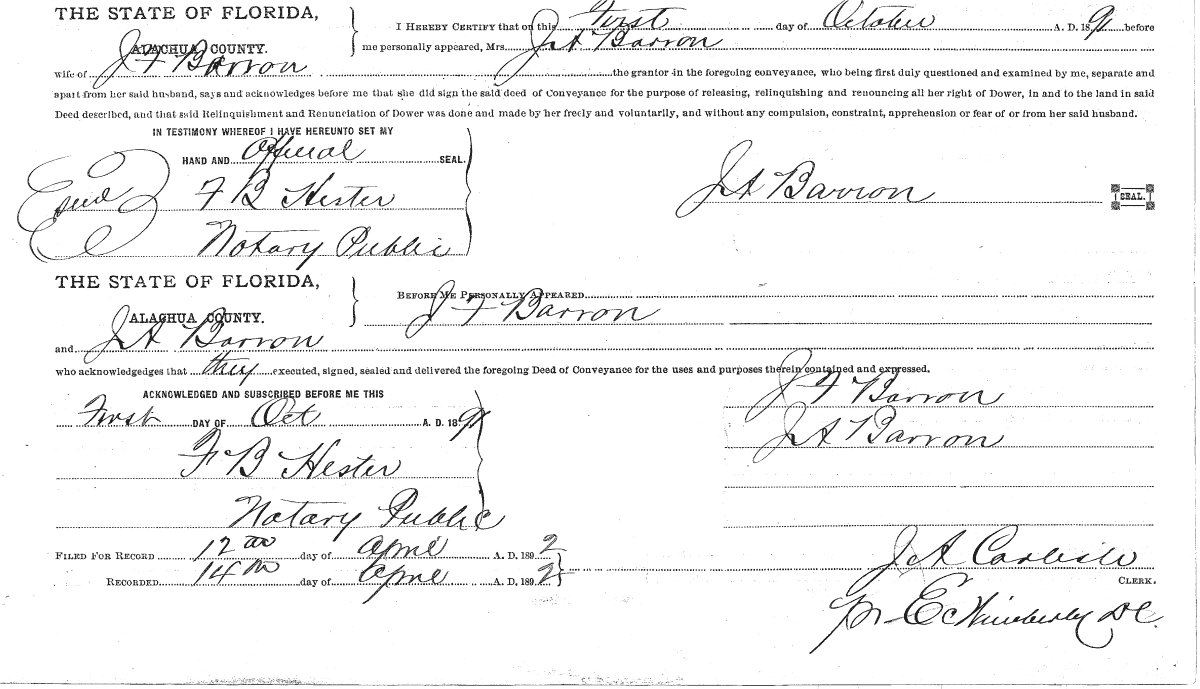 THE STATE OF FLORIDA,
ALACHUA COUNTY.
I HEREBY CERTIFY that on this First day of October A. D. 1891 before
me personally appeared, Mrs. J A Barron
wife of J F Barron the grantor in the foregoing conveyance, who being first duly questioned and examined by me, separate and
apart from her said husband, says and acknowledges before me that she did sign the said deed of Conveyance for the purpose of releasing, relinquishing and renouncing all her right of Dower, in and to the land in said
Deed described, and that said Relinquishment and Renunciation of Dower was done and made by her freely and voluntarily, and without any compulsion, constraint, apprehension or fear of or from her said husband.
IN TESTIMONY WHEREOF I HAVE HEREUNTO SET MY
HAND AND Official SEAL.
F B Hester
Notary Public
J A Barron
SEAL.
THE STATE OF FLORIDA,
ALACHUA COUNTY.
BEFORE ME PERSONALLY APPEARED
J F Barron
and J A Barron
who acknowledgedges that they executed, signed, sealed and delivered the foregoing Deed of Conveyance for the uses and purposes therein contained and expressed.
ACKNOWLEDGED AND SUBSCRIBED BEFORE ME THIS
First DAY OF Oct A. D. 1891
F B Hester
Notary Public
J F Barron
J A Barron
FILED FOR RECORD 12 day of April A. D. 1892
RECORDED 14 day of April A. D. 1892
J A Carlisle
CLERK.
pr E C Kimberly D C.